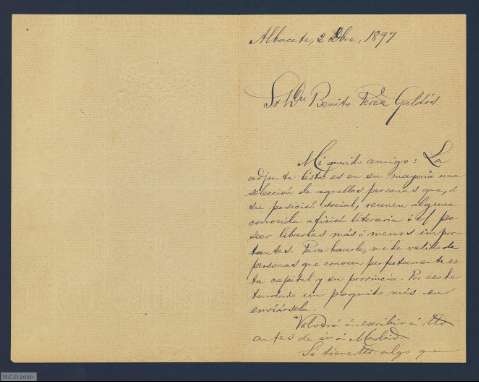 Albacete, 2 Dbre, 1897
Sr Dn Benito Pérez Galdós
Mi querido amigo: La
adjunta lista es en su mayoría una
selección de aquellas personas que, á
su posición social, reunen alguna
conocida afición literaria ó el po
seer librerías más ó menos impor
tantes. Para hacerla, me he valido de
personas que conocen perfectamente es
ta capital y su provincia. Por eso he
tardado un poquito más en
enviársela.
Volveré á escribir á
antes de ir á Madrid
Si tiene algo que